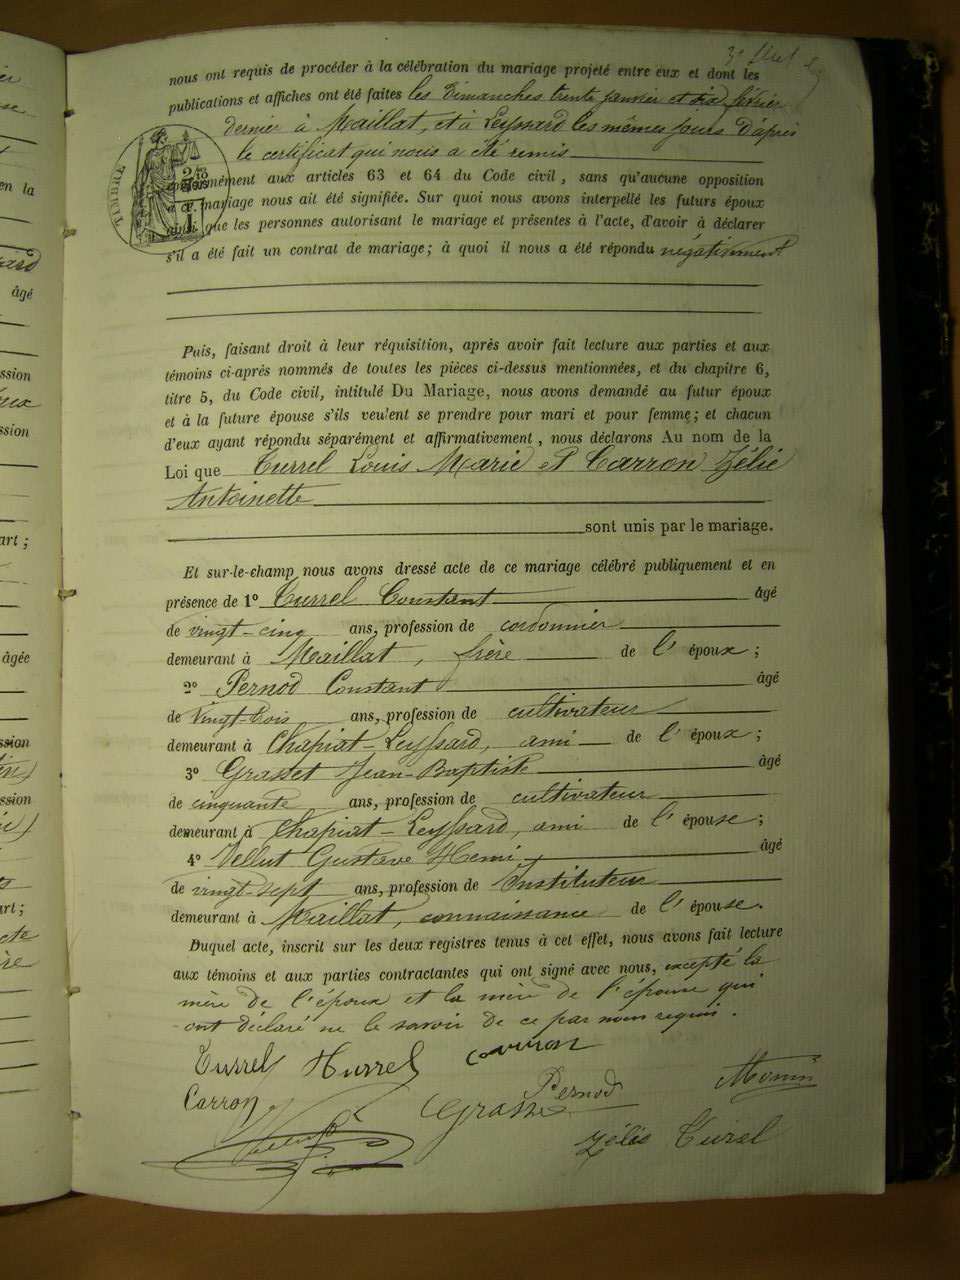 3e feuillet
nous ont requis de procéder à la célébration du mariage projeté entre eux et dont les
publications et affiches ont été faites les Dimanches trente janvier et six février
dernier à Maillat, et à Leyssard les mêmes jours D'après
le certificat qui nous a été remis
conformément aux articles 63 et 64 du Code civil, sans qu'aucune opposition
à ce mariage nous ait été signifiée. Sur quoi nous avons interpellé les futurs époux
ainsi que les personnes autorisant le mariage et présentes à l'acte, d'avoir à déclarer
s'il a été fait un contrat de mariage; à quoi il nous a été répondu négativement
TIMBRE
Puis, faisant droit à leur réquisition, après avoir fait lecture aux parties et aux
témoins ci-après nommés de toutes les pièces ci-dessus mentionnées, et du chapitre 6,
titre 5, du Code civil, intitulé Du Mariage, nous avons demandé au futur époux
et à la future épouse s'ils veulent se prendre pour mari et pour femme; et chacun
d'eux ayant répondu séparément et affirmativement, nous déclarons Au nom de la
Loi que Turrel Louis Marie et Carron Zélie
Antoinette
sont unis par le mariage.
Et sur-le-champ nous avons dressé acte de ce mariage célébré publiquement et en
présence de 1° Turrel Constant âgé
de vingt-cinq ans, profession de cordonnier
demeurant à Maillat, frère de l'époux;
2° Pernod Constant âgé
de Vingt-trois ans, profession de cultivateur
demeurant à Chapiat-Leyssard, ami de l'époux;
3° Grasset Jean-Baptiste âgé
de cinquante ans, profession de cultivateur
demeurant à Chapiat-Leyssard, ami de l'épouse;
4° Vellut Gustave Henri âgé
de vingt-sept ans, profession de Instituteur
demeurant à Maillat, connaissance de l'épouse.
Duquel acte, inscrit sur les deux registres tenus à cet effet, nous avons fait lecture
aux témoins et aux parties contractantes qui ont signé avec nous, excepté la
mère de l'époux et la mère de l'épouse qui
ont déclaré ne le savoir de ce par nous requis.
Turrel Turrel Carron
Carron Grasset Pernod Monin
Zélis Turel